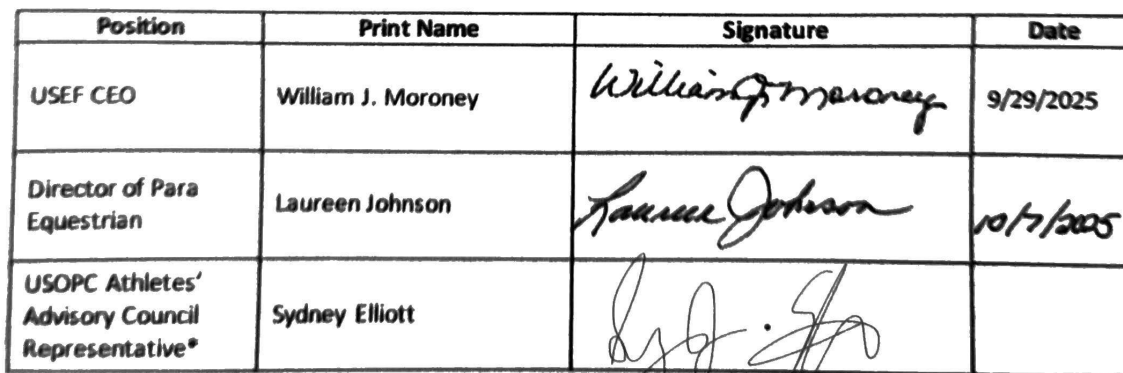 Position Print Name Signature Date
USEF CEO William J. Moroney William J. Moroney 9/29/2025
Director of Para
Equestrian Laureen Johnson Laureen Johnson 10/7/2025
USOPC Athletes'
Advisory Council Sydney Elliott
Representative*